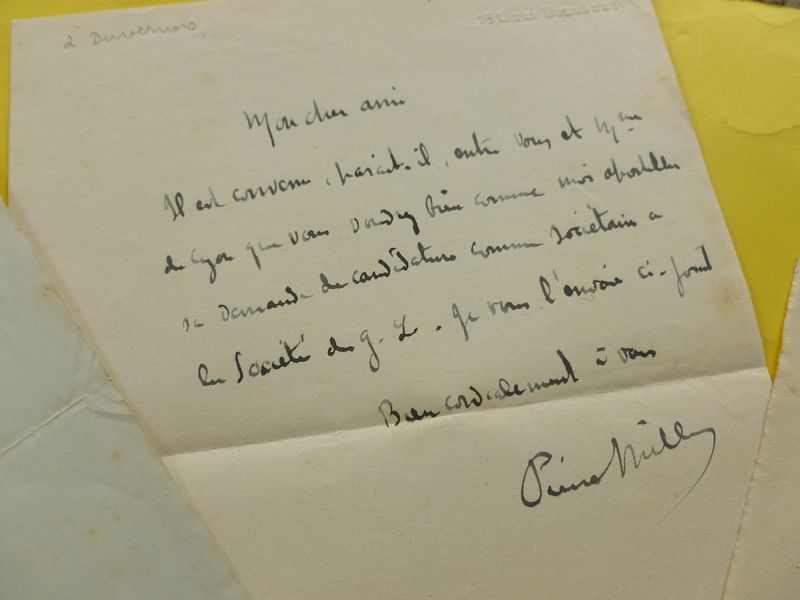 à Duvernois
15 Quai Bourbon IV
Mon cher ami
Il est convenu, paraît-il, entre vous et Mme
de Cyon que vous voudrez bien comme moi apostiller
sa demande de candidature comme sociétaire a
la Société des g. L. Je vous l'envoie ci-joint
Bien cordialement à vous
Pierre Mille